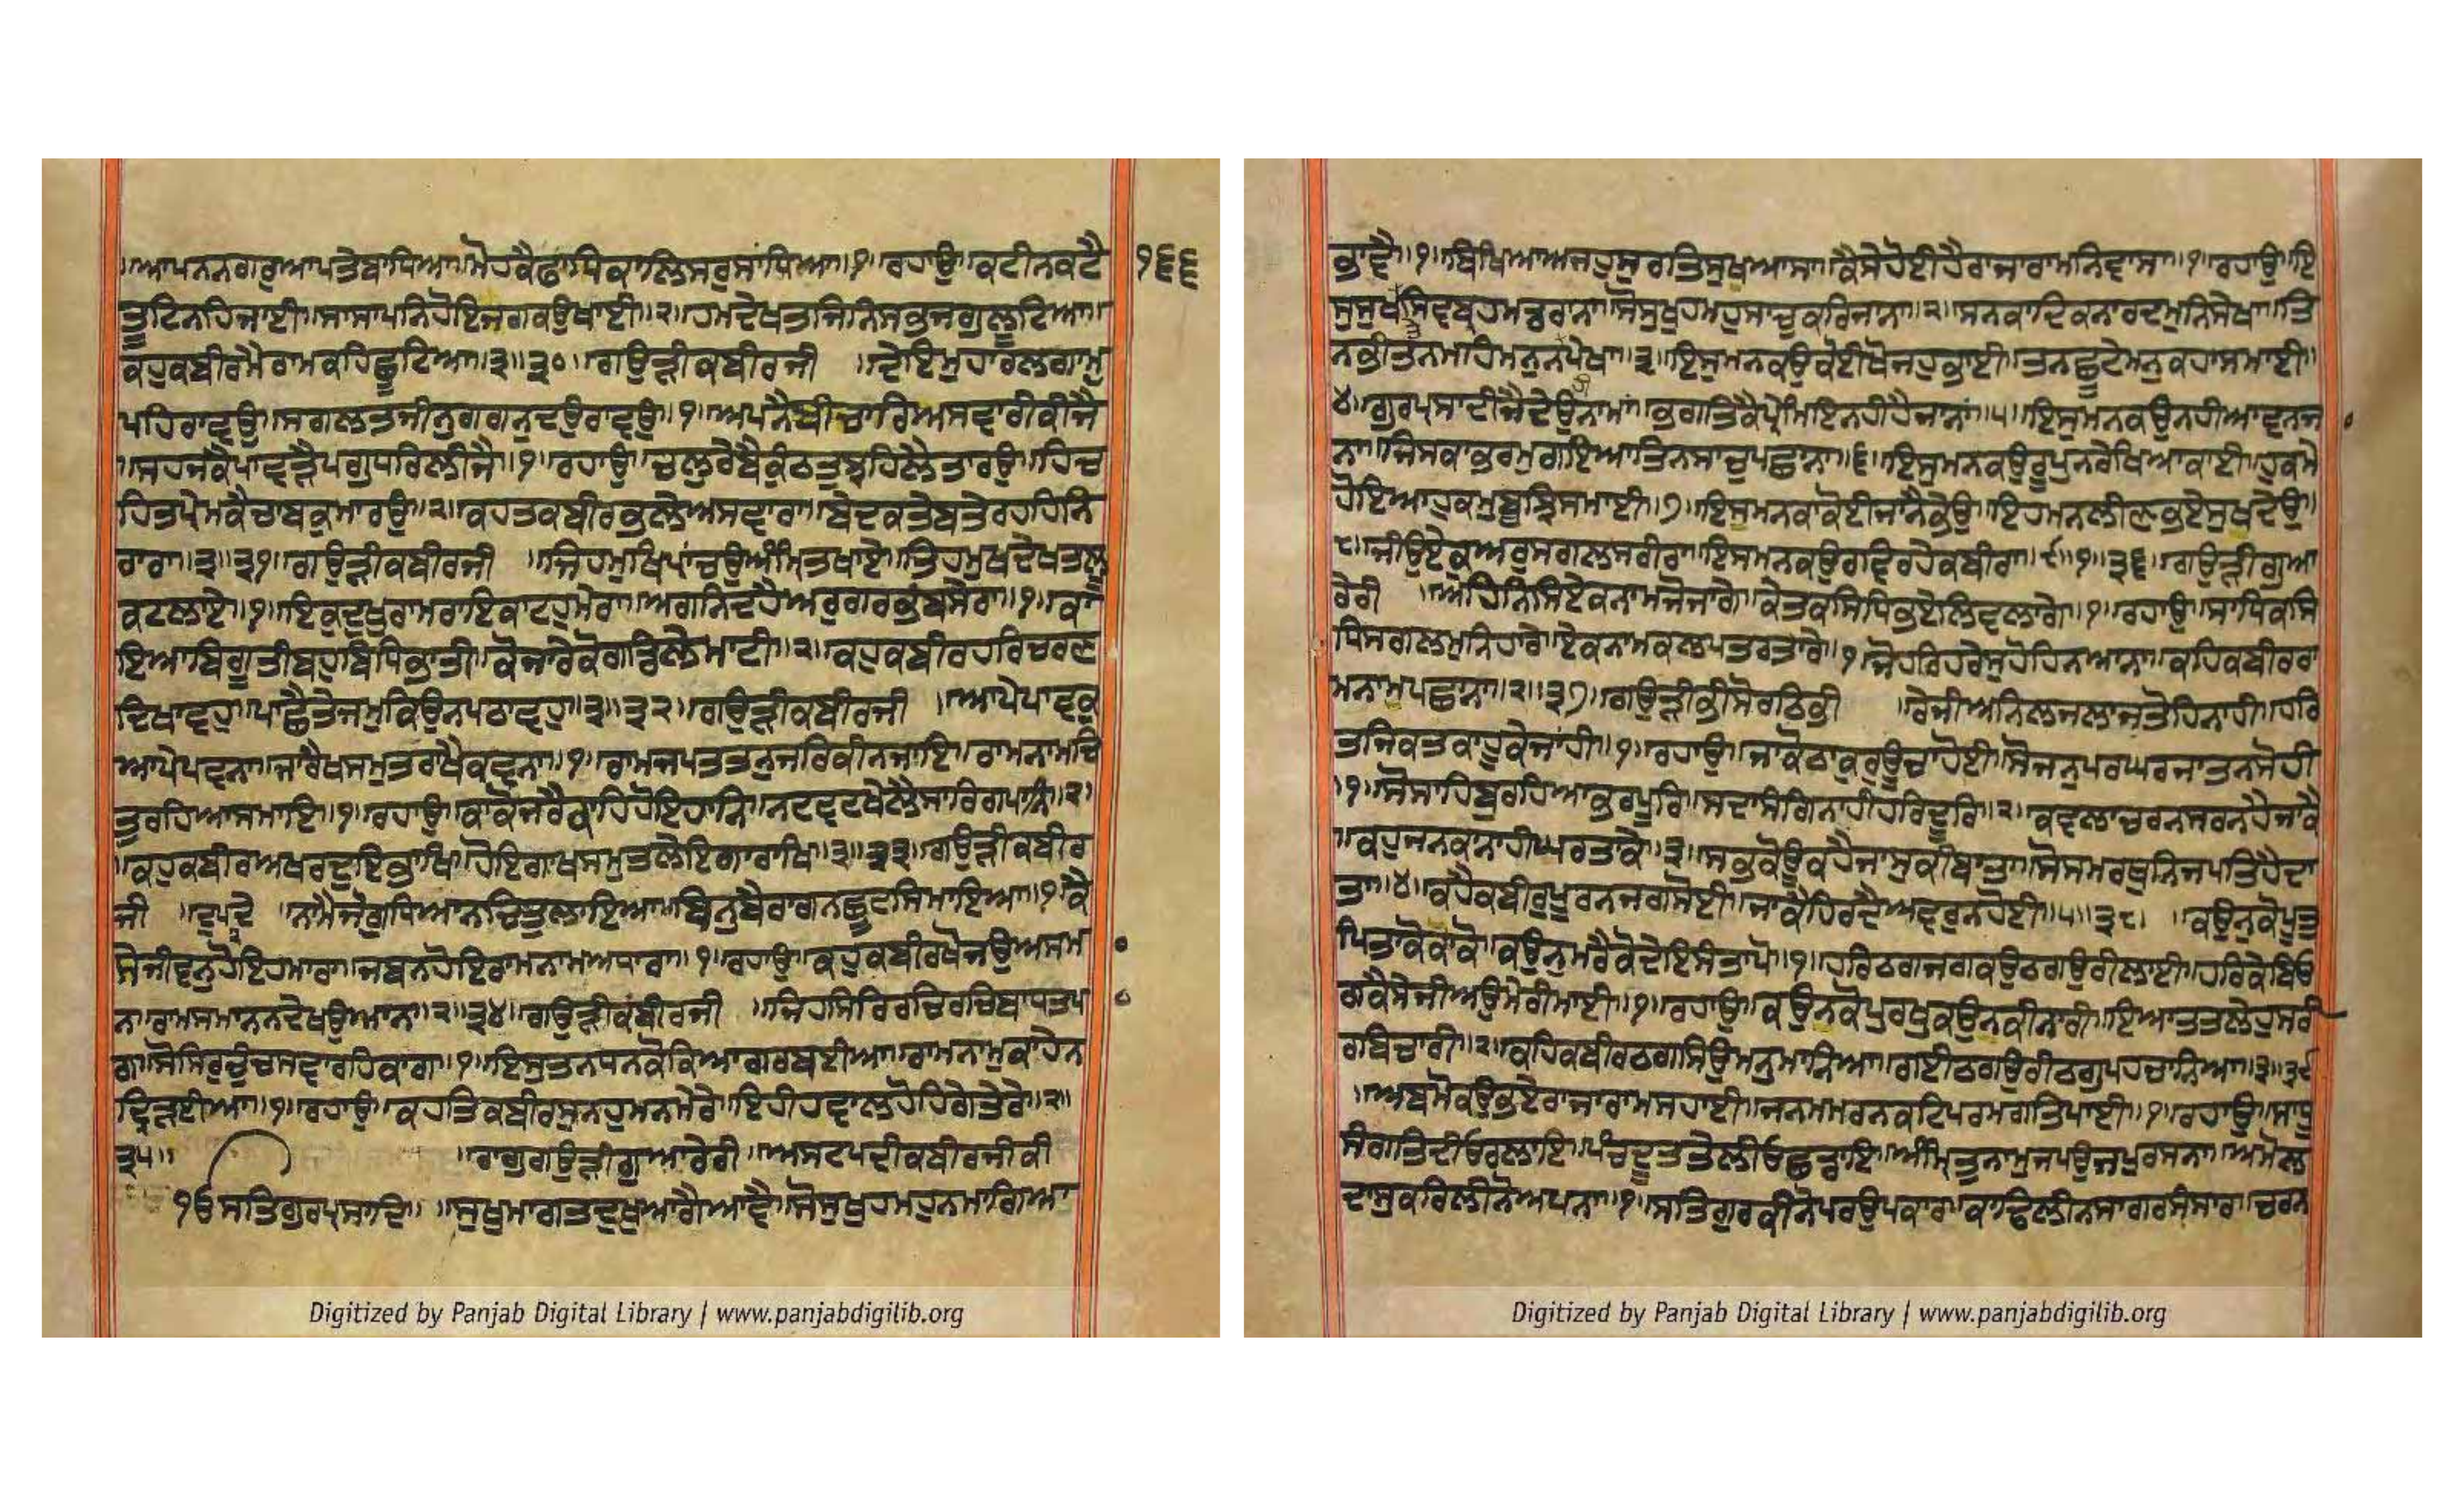 ॥ਆਪਨਨਗਰੁਆਪਤੇਬਾਧਿਆ॥ਮੋਹਕੈਫਾਧਿਕਾਲਿਸਰੁਸਾਂਧਿਆ॥੧॥ਰਹਾਉ॥ਕਟੀਨਕਟੈ
੧੬੬
ਤੂਟਿਨਹਿਜਾਈ॥ਸਾਸਾਪਨਿਹੋਇਜਗਕਉਖਾਈ॥੨॥ਹਮਦੇਖਤਜਿਨਿਸਭੁਜਗੁਲੂਟਿਆ॥
ਕਹੁਕਬੀਰਮੈਰਾਮਕਹਿਛੂਟਿਆ॥੩॥੩੦॥ਗਉੜੀਕਬੀਰਜੀ ॥ਦੇਇਮੁਹਾਰਲਗਾਮੁ
ਪਹਿਰਾਵਉ॥ਸਗਲਤਜੀਨੁਗਗਨਦਉਰਾਵਉ॥੧॥ਅਪਨੈਬੀਚਾਰਿਅਸਵਾਰੀਕੀਜੈ
॥ਸਹਜਕੇਪਾਵੜੈਪਗੁਧਰਿਲੀਜੈ॥੧॥ਰਹਾਉ॥ਚਲੁਰੇਬੈਕੁੰਠਤੁਝਹਿਲੈਤਾਰਉ॥ਹਿਚ
ਹਿਤਪ੍ਰੇਮਕੈਚਾਬਕੁਮਾਰਉ॥੨॥ਕਹਤਕਬੀਰਭਲੇਅਸਵਾਰਾ॥ਬੇਦਕਤੇਬਤੇਰਹਹਿਨਿ
ਰਾਰਾ॥੩॥੩੧॥ਗਉੜੀਕਬੀਰਜੀ ॥ਜਿਹਮੁਖਿਪਾਂਚਉਅੰਮ੍ਰਿਤਖਾਏ॥ਤਿਹਮੁਖਦੇਖਤਲੂ
ਕਟਲਾਏ॥੧॥ਇਕੁਦੁਖੁਰਾਮਰਾਇਕਾਟਹੁਮੇਰਾ॥ਅਗਨਿਦਹੈਅਰੁਗਰਭਬਸੇਰਾ॥੧॥ਕਾ
ਇਆਬਿਗੂਤੀਬਹੁਬਿਧਿਭਾਤੀ॥ਕੋਜਾਰੇਕੋਗਡਿਲੇਮਾਟੀ॥੨॥ਕਹੁਕਬੀਰਹਰਿਚਰਣ
ਦਿਖਾਵਹੁ॥ਪਾਛੈਤੇਜਮੁਕਿਉਨਪਠਾਵਹੁ॥੩॥੩੨॥ਗਉੜੀਕਬੀਰਜੀ ॥ਆਪੇਪਾਵਕੁ
ਆਪੇਪਵਨਾ॥ਜਾਰੈਖਸਮੁਤਰਾਖੈਕਵਨਾ॥੧॥ਰਾਮਜਪਤਤਨੁਜਰਿਕੀਨਜਾਇ॥ਰਾਮਨਾਮਚਿ
ਤੁਰਹਿਆਸਮਾਇ॥੧॥ਰਹਾਉ॥ਕਾਕੋਜਰੈਕਾਹਿਹੋਇਹਾਨਿ॥ਨਟਵਟਖੇਲੈਸਾਰਿਗਪਾਨਿ॥੨॥
॥ਕਹੁਕਬੀਰਅਖਰਦੁਇਭਾਖਿ॥ਹੋਇਗਾਖਸਮੁਤਲੇਇਗਾਰਾਖਿ॥੩॥੩੩॥ਗਉੜੀਕਬੀਰ
ਜੀ ॥ਦੁਪਦੇ ॥ਨਾਮੈਜੋਗਧਿਆਨਚਿਤੁਲਾਇਆ॥ਬਿਨੁਬੈਰਾਗਨਛੂਟਸਿਮਾਇਆ॥੧॥ਕੈ
ਸੇਜੀਵਨੁਹੋਇਹਮਾਰਾ॥ਜਬਨਹੋਇਰਾਮਨਾਮਅਧਾਰਾ॥੧॥ਰਹਾਉ॥ਕਹੁਕਬੀਰਖੋਜਉਅਸਮਾ
ਨਾ॥ਰਾਮਸਮਾਨਨਦੇਖਉਆਨਾ॥੨॥੩੪॥ਗਉੜੀਕਬੀਰਜੀ ॥ਜਿਹਸਿਰਿਰਚਿਰਚਿਬਾਧਤਪਾ
ਗ॥ਸੋਸਿਰੁਚੁੰਚਸਵਾਰਹਿਕਾਗ॥੧॥ਇਸੁਤਨਧਨਕੋਕਿਆਗਰਬਈਆ॥ਰਾਮਨਾਮੁਕਾਹੇਨ
ਦ੍ਰਿੜਈਆ॥੧॥ਰਹਾਉ॥ਕਹਤਿਕਬੀਰਸੁਨਹੁਮਨਮੇਰੇ॥ਇਹੀਹਵਾਲਹੋਹਿਗੇਤੇਰੇ॥੨॥
੩੫॥ ॥ਰਾਗੁਗਉੜੀਗੁਆਰੇਰੀ॥ਅਸਟਪਦੀਕਬੀਰਜੀਕੀ
ੴਸਤਿਗੁਰਪ੍ਰਸਾਦਿ॥ ॥ਸੁਖੁਮਾਗਤਦੁਖੁਆਗੈਆਵੈ॥ਸੋਸੁਖੁਹਮਹੁਨਮਾਗਿਆ
ਭਾਵੈ॥੧॥ਬਿਖਿਆਅਜਹੁਸੁਰਤਿਸੁਖਆਸਾ॥ਕੈਸੇਹੋਈਹੈਰਾਜਾਰਾਮਨਿਵਾਸਾ॥੧॥ਰਹਾਉ॥ਇ
ਸੁਸੁਖਤੇਸਿਵਬ੍ਰਹਮਡਰਾਨਾ॥ਸੋਸੁਖੁਹਮਹੁਸਾਚੁਕਰਿਜਾਨਾ॥੨॥ਸਨਕਾਦਿਕਨਾਰਦਮੁਨਿਸੇਖਾ॥ਤਿ
ਨਭੀਤਨਮਹਿਮਨੁਨਪੇਖਾ॥੩॥ਇਸੁਮਨਕਉਕੋਈਖੋਜਹੁਭਾਈ॥ਤਨਛੂਟੇਮਨੁਕਹਾਸਮਾਈ॥
੪॥ਗੁਰਪ੍ਰਸਾਦੀਜੈਦੇਉਨਾਮਾਂ॥ਭਗਤਿਕੈਪ੍ਰੇਮਿਇਨਹੀਹੈਜਾਨਾਂ॥੫॥ਇਸੁਮਨਕਉਨਹੀਆਵਨਜਾ
ਨਾ॥ਜਿਸਕਾਭਰਮੁਗਇਆਤਿਨਸਾਚੁਪਛਾਨਾ॥੬॥ਇਸੁਮਨਕਉਰੂਪੁਨਰੇਖਿਆਕਾਈ॥ਹੁਕਮੇ
ਹੋਇਆਹੁਕਮੁਬੂਝਿਸਮਾਈ॥੭॥ਇਸੁਮਨਕਾਕੋਈਜਾਨੈਭੇਉ॥ਇਹਮਨਲੀਣਭਏਸੁਖਦੇਉ॥
੮॥ਜੀਉਏਕੁਅਰੁਸਗਲਸਰੀਰਾ॥ਇਸਮਨਕਉਰਵਿਰਹੇਕਬੀਰਾ॥੯॥੧॥੩੬॥ਗਉੜੀਗੁਆ
ਰੇਰੀ ॥ਅਹਿਨਿਸਿਏਕਨਾਮਜੋਜਾਗੇ॥ਕੇਤਕਸਿਧਿਭਏਲਿਵਲਾਗੇ॥੧॥ਰਹਾਉ॥ਸਾਧਿਕਸਿ
ਧਿਸਗਲਮੁਨਿਹਾਰੇ॥ਏਕਨਾਮਕਲਪਤਰਤਾਰੇ॥੧॥ਜੋਹਰਿਹਰੇਸੁਹੋਹਿਨਆਨਾ॥ਕਹਿਕਬੀਰਰਾ
ਮਨਾਮਪਛਾਨਾ॥੨॥੩੭॥ਗਉੜੀਭੀਸੋਰਠਿਭੀ ॥ਰੇਜੀਅਨਿਲਜਲਾਜਤੋਹਿਨਾਹੀ॥ਹਰਿ
ਤਜਿਕਤਕਾਹੂਕੇਜਾਂਹੀ॥੧॥ਰਹਾਉ॥ਜਾਕੋਠਾਕੁਰਊਚਾਹੋਈ॥ਸੋਜਨੁਪਰਘਰਜਾਤਨਸੋਹੀ
॥੧॥ਸੋਸਾਹਿਬੁਰਹਿਆਭਰਪੂਰਿ॥ਸਦਾਸੰਗਿਨਾਹੀਹਰਿਦੂਰਿ॥੨॥ਕਵਲਾਚਰਨਸਰਨਹੈਜਾਕੈ
॥ਕਹੁਜਨਕਨਾਹੀਘਰਤਾਕੈ॥੩॥ਸਭੁਕੋਊਕਹੈਜਾਸੁਕੀਬਾਤਾ॥ਸੋਸਮਰਥੁਨਿਜਪਤਿਹੈਦਾ
ਤਾ॥੪॥ਕਹੈਕਬੀਰੁਪੂਰਨਜਗਸੋਈ॥ਜਾਕੈਹਿਰਦੈਅਵਰੁਨਹੋਈ॥੫॥੩੮॥ ॥ਕਉਨੁਕੋਪੂਤੁ
ਪਿਤਾਕੋਕਾਕੋ॥ਕਉਨੁਮਰੈਕੋਦੇਇਸੰਤਾਪੋ॥੧॥ਹਰਿਠਗਜਗਕਉਠਗਉਰੀਲਾਈ॥ਹਰਿਕੇਬਿਓ
ਗਕੈਸੇਜੀਅਉਮੇਰੀਮਾਈ॥੧॥ਰਹਾਉ॥ਕਉਨਕੋਪੁਰਖੁਕਉਨਕੀਨਾਰੀ॥ਇਆਤਤਲੇਹੁਸਰੀ
ਰਬਿਚਾਰੀ॥੨॥ਕਹਿਕਬੀਰਠਗਸਿਉਮਨੁਮਾਨਿਆ॥ਗਈਠਗਉਰੀਠਗੁਪਹਚਾਨਿਆ॥੩॥੩੯
॥ਅਬਮੋਕਉਭਏਰਾਜਾਰਾਮਸਹਾਈ॥ਜਨਮਮਰਨਕਟਿਪਰਮਗਤਿਪਾਈ॥੧॥ਰਹਾਉ॥ਸਾਧੂ
ਸੰਗਤਿਦੀਓਰਲਾਇ॥ਪੰਚਦੂਤਤੇਲੀਓਛਡਾਇ॥ਅੰਮ੍ਰਿਤੁਨਾਮੁਜਪਉਜਪੁਰਸਨਾ॥ਅਮੋਲ
ਦਾਸੁਕਰਿਲੀਨੋਅਪਨਾ॥੧॥ਸਤਿਗੁਰਕੀਨੋਪਰਉਪਕਾਰ॥ਕਾਢਿਲੀਨਸਾਗਰਸੰਸਾਰ॥ਚਰਨ
Digitized by Panjab Digital Library | www.panjabdigilib.org
Digitized by Panjab Digital Library | www.panjabdigilib.org